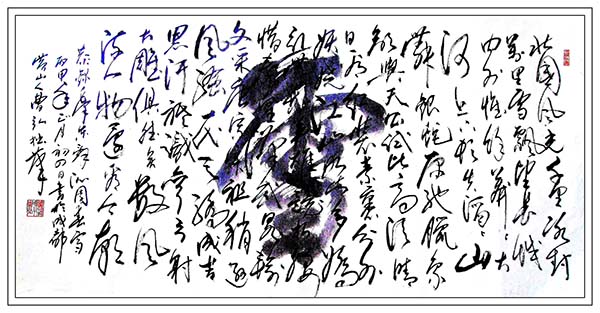 北国风光千里冰封
万里雪飘望长城
内外惟余莽莽大
河上下顿失滔滔山
舞银蛇原驰蜡象
欲与天公试比高须晴
日看红装素裹分外
妖娆江山如此多娇
引无数英雄竞折腰
惜秦皇汉武略输
文采唐宗宋祖稍逊
风骚一代天骄成吉
思汗只识弯弓射
大雕俱往矣数风
流人物还看今朝
恭录毛泽东词沁园春雪
丙申年正月初四日书於成都
营山人
雪